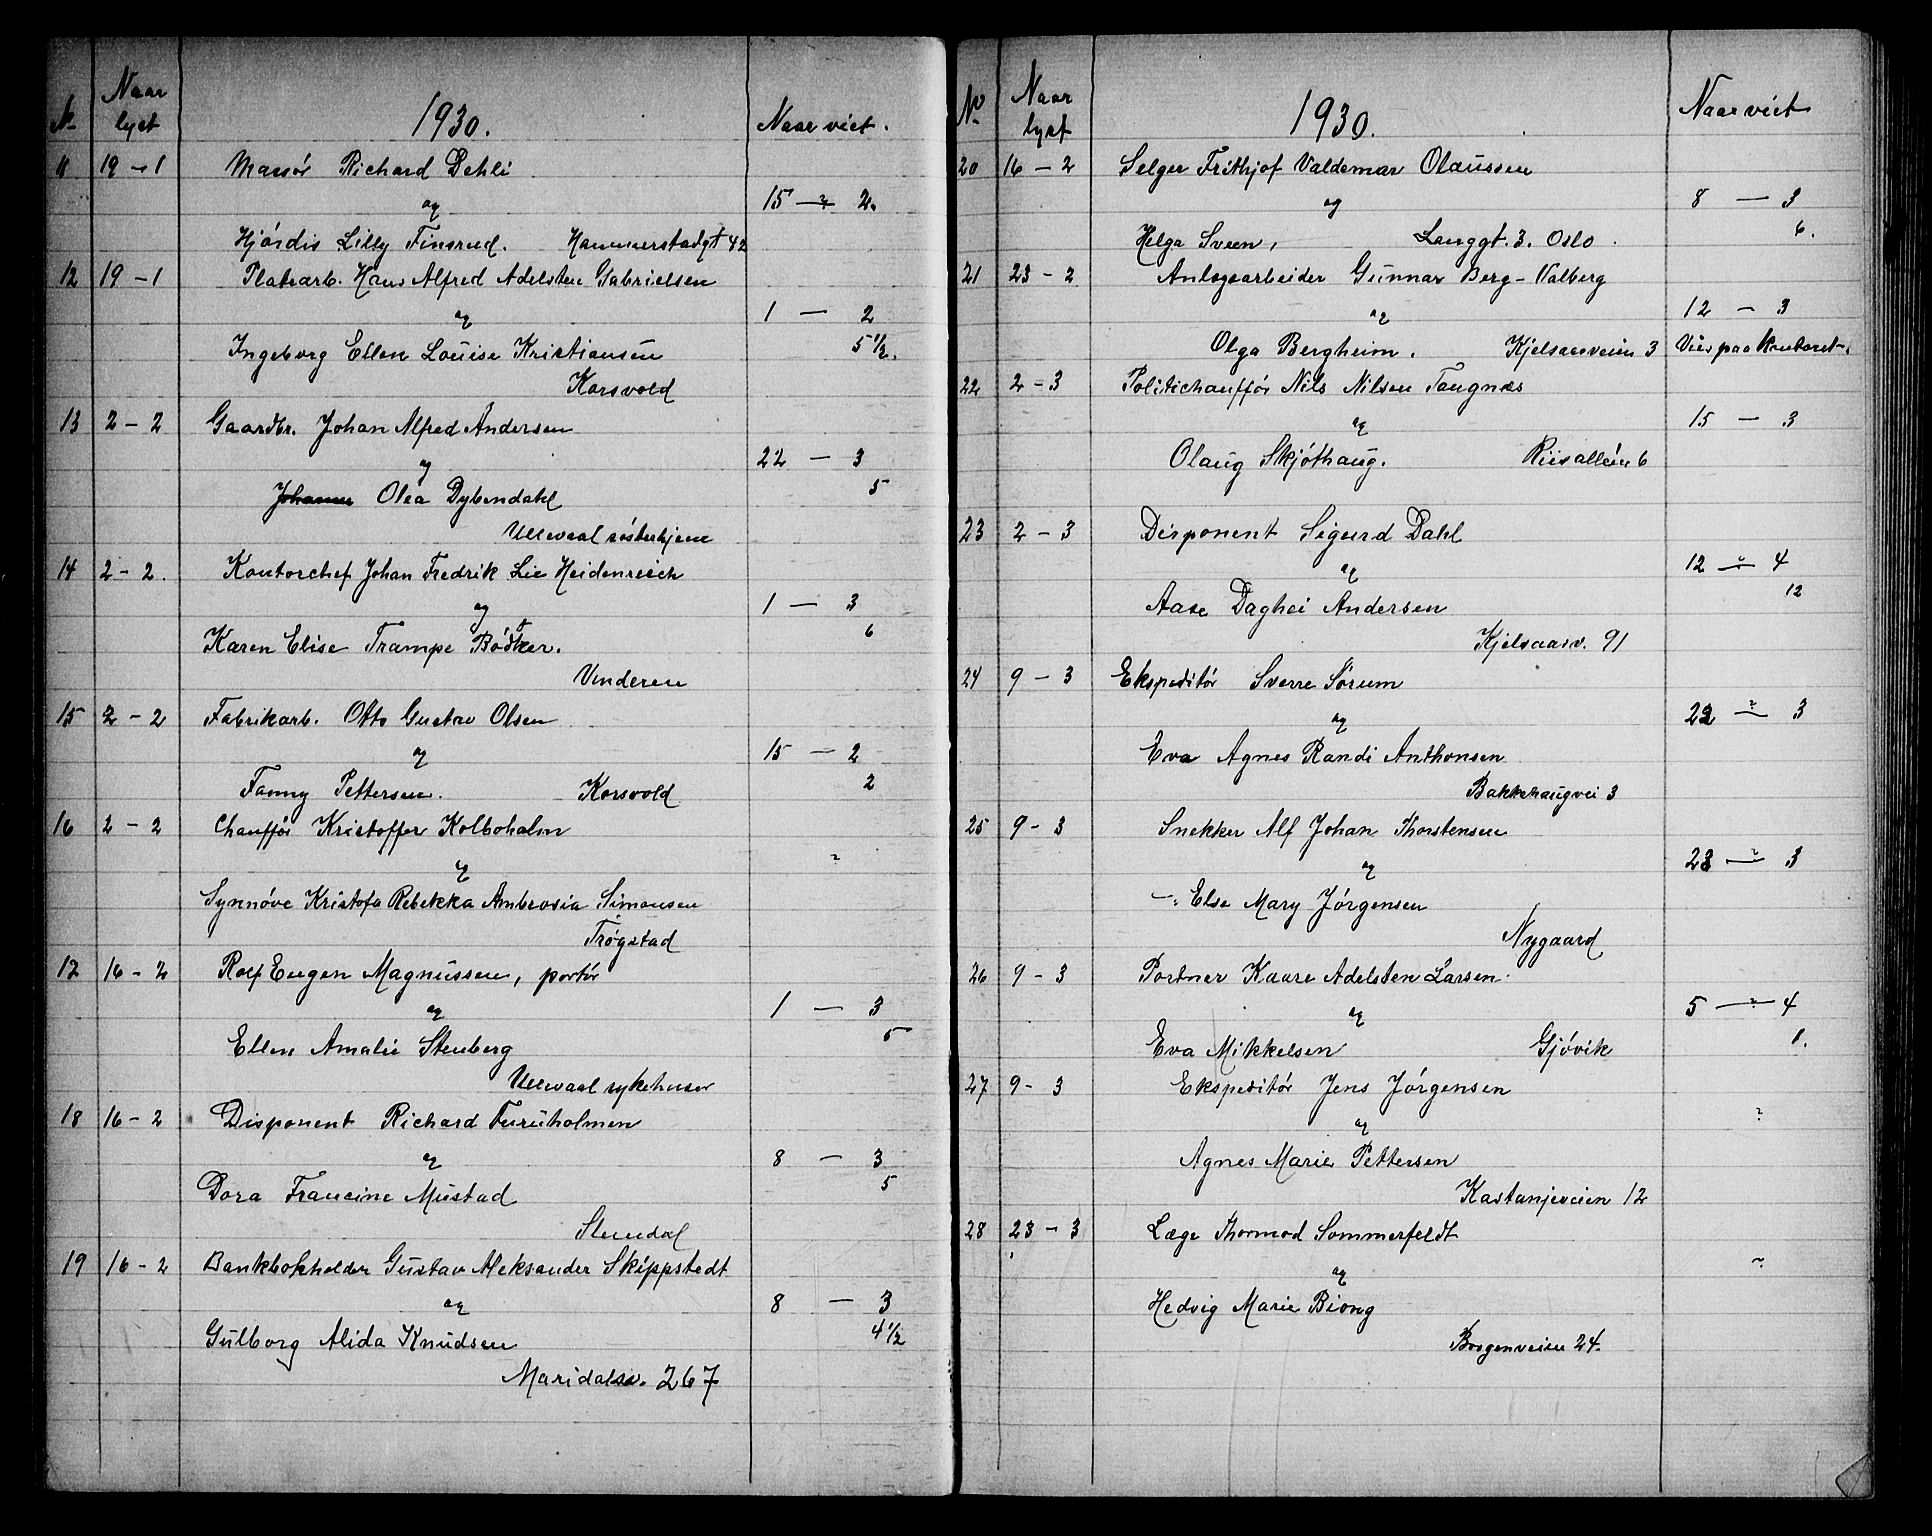 No Naar lyst 1930. Naar viet.
11 19-1 Massör Richard Dehli
og 15 - ? 2.
Hjördis Lilly Finsrud. Hammerstadgt 42
12 19-1 Platearb. Hans Alfred Adelsten Gabrielsen
og 1 - 2
Ingeborg Ellen Louise Kristiansen 5 1/2.
Korsvold
13 2-2 Gaardbr. Johan Alfred Andersen
og 22 - 3
Johanne Olea Dybendahl 5
Ullevaal söster hjem
14 2-2. Kontorchef Johan Fredrik Lie Heidenreich
og 1 - 3
Karen Elise Trampe Bödtker. 6
Vinderen
15 2-2 Fabrikarb. Otto Gustav Olsen
og 15 - 2
Fanny Pettersen. Korsvold 2
16 2-2 Chaufför Kristoffer Kolboholm
og ?
Synnöve Kristofa Rebekka Ambrosia Simonsen
Trögstad
17 16-2 Rolf Eugen Magnussen, portör
og 1 - 3
Ellen Amalie Stenberg 5
Ullevaal sykehuser
18 16-2 Disponent Richard Furuholmen
og 8 - 3
Dora Francine Mustad 5
Stendal
19 16-2 Bankbokholder Gustav Aleksander Skippstedt
og 8 - 3
Gulborg Alida Knudsen 4 1/2
Maridalsv. 267
No Naar lyst 1930. Naar viet
20 16-2 Selger Frithjof Valdemar Olaussen
og 8 - 3
Helga Sveen, Langgt. 3. Oslo. 6.
21 23-2 Anlegsarbeider Gunnar Berg-Valberg
og 12 - 3
Olga Bergheim. Kjelsaasveien 3 Vies paa kontoret.
22 2-3 Politichaufför Nils Nilsen Tangnæs
og 15 - 3
Olaug Skjöthaug. Riisalleen 6
23 2-3 Disponent Sigurd Dahl
og 12 - ? 4
Aase Daghei Andersen 12
Kjelsaasv. 91
24 9-3 Ekspeditör Sverre Sörum
og 22 - ? 3
Eva Agnes Randi Anthonsen
Bakkehaugvei 3
25 9-3 Snekker Alf Johan Thorstensen
og 23 - ? 3
Else Mary Jörgensen
Nygaard
26 9-3 Portner Kaare Adelsten Larsen.
og 5 - ? 4
Eva Mikkelsen Gjövik 1.
27 9-3 Ekspeditör Jens Jörgensen
og ?
Agnes Marie Pettersen
Kastanjeveien 12
28 23-3 Læge Thormod Sommerfeldt
og ?
Hedvig Marie Biong
Borgenveien 24.